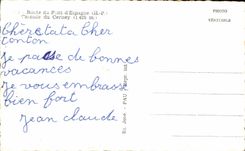 Route du Pont d'Espagne (H.-P.)
Cascade du Cerisey (1.425 m.)
Chère tata Cher
tonton
je passe de bonnes
vacances
je vous embrasse
bien fort
jean claude
PHOTO
VÉRITABLE